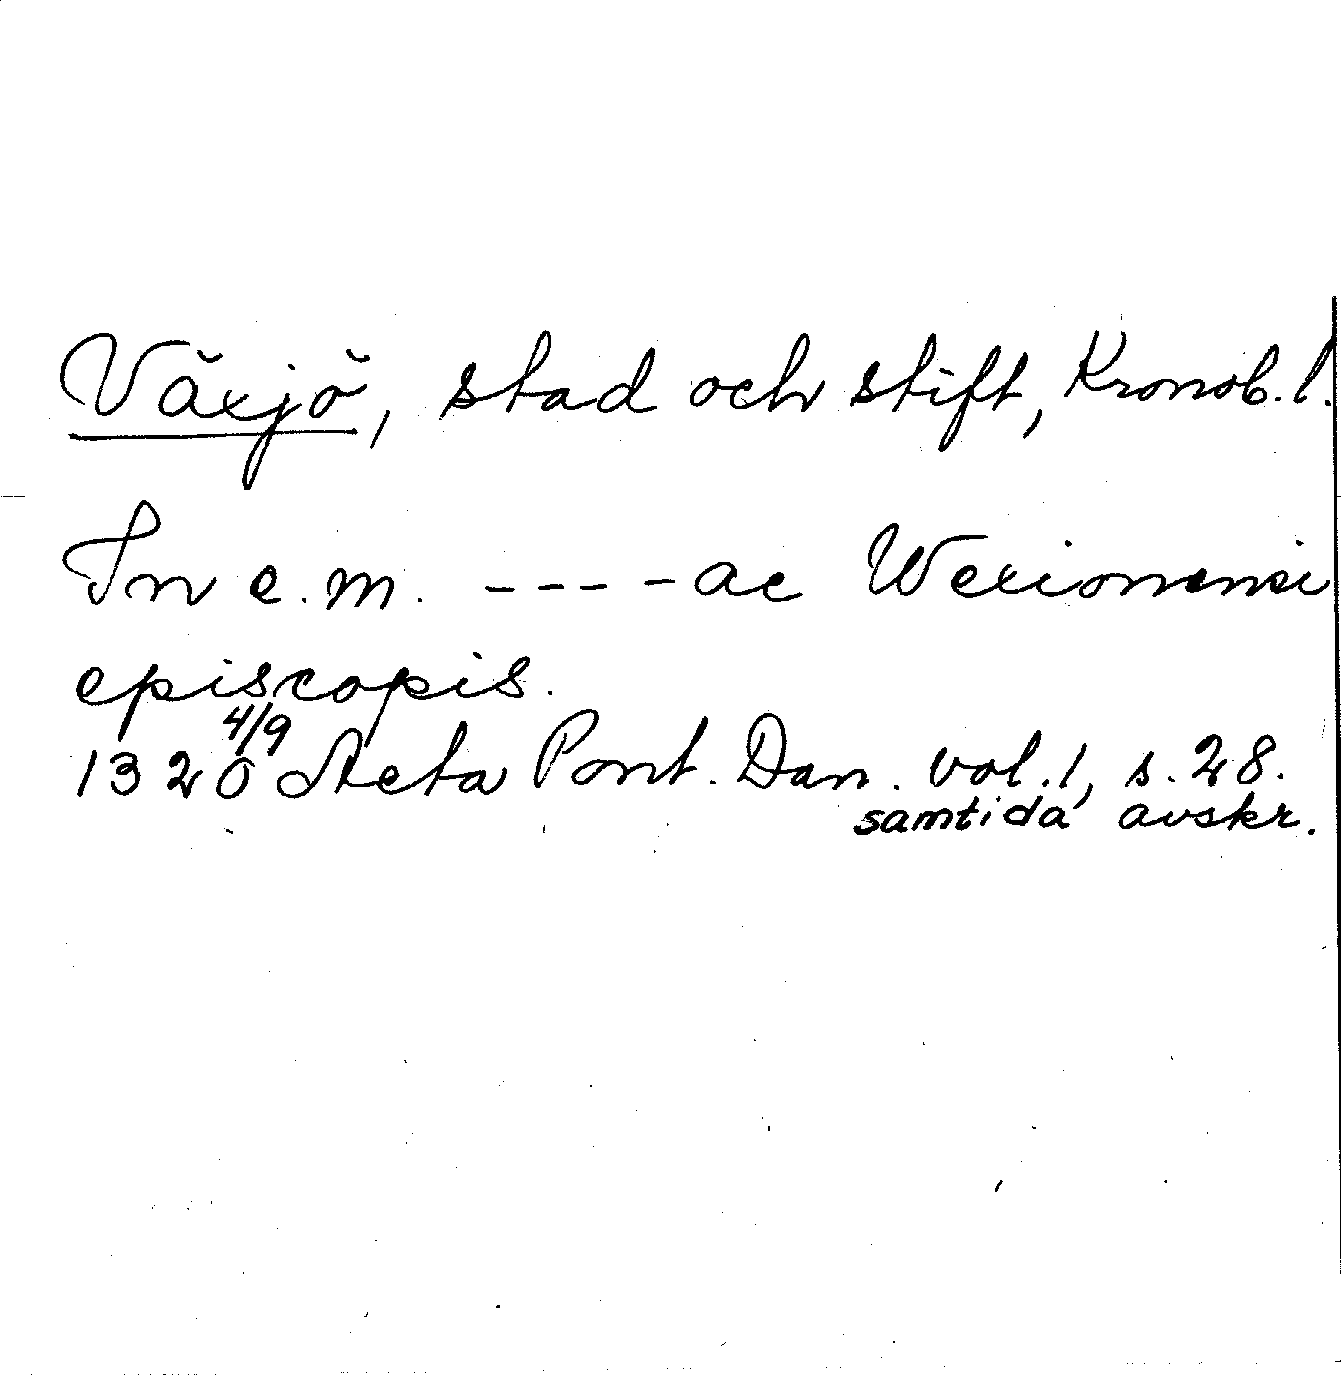 Växjö, stad och stift, Kronob. l.
In e. m. - - - - ac Wexionensi
episcopis.
1320 4/9 Acta Pont. Dan. vol. 1, s. 28.
samtida avskr.